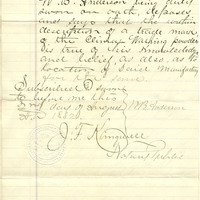 W. B. Anderson being duly
sworn on oath, deposes
and says that the within
description of a trade mark
of the Climax Washing powder
is true of his knowledge
and belief as also, as to
location of Said Manufactory
for
Subscribed & sworn
to before me this
day of August W B Anderson
J. F. Kingwell
Notary Public